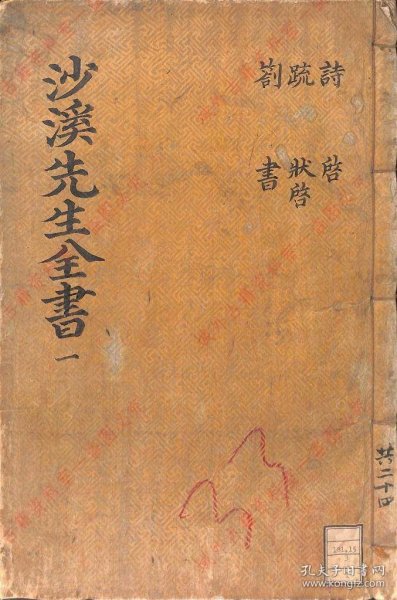 詩 啓
疏 狀啓
劄 書
沙溪先生全書 一
共二十四
181.15
孔夫子旧书网
www.kongfz.com